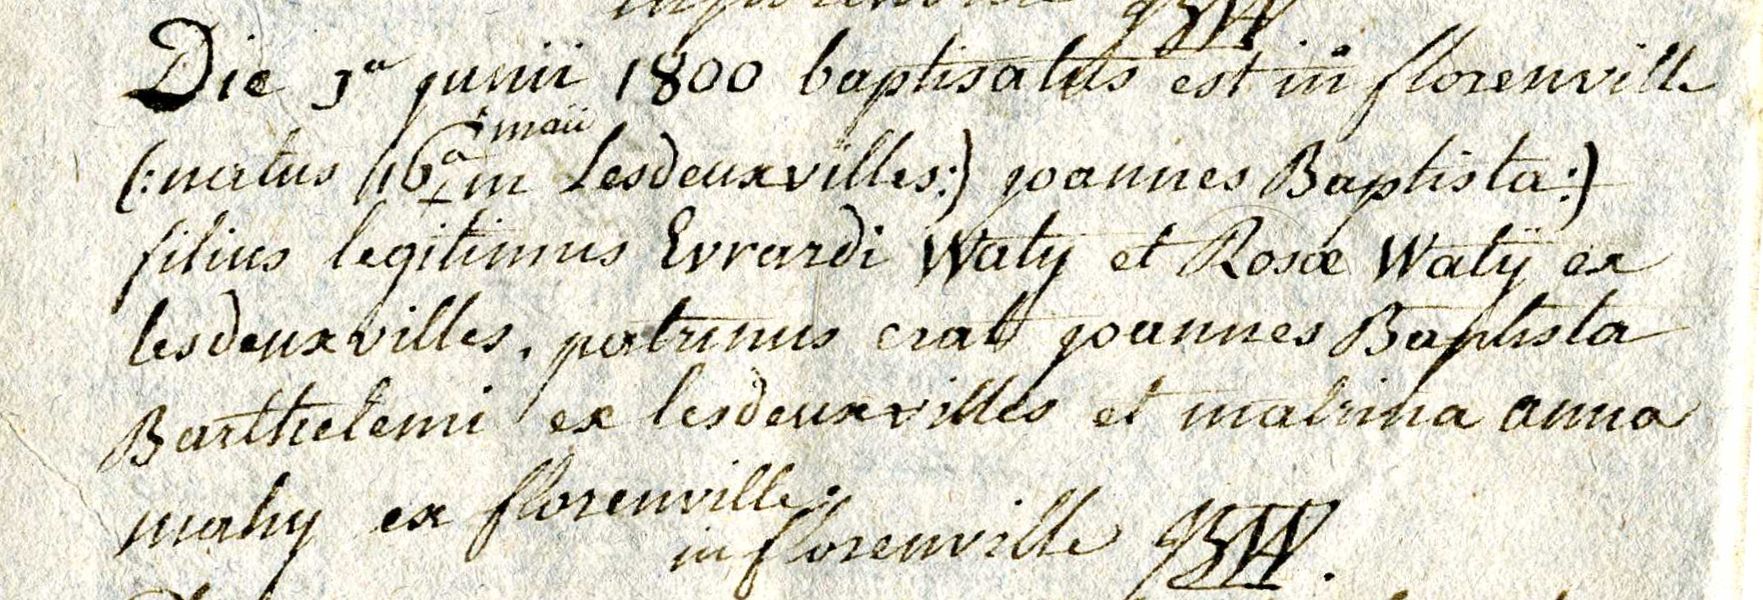 Die 1ª junii 1800 baptisatus est in florenville
maii
(:natus 16ª in Lesdeuxvilles:) joannes Baptista:)
filius legitimus Evrardi Waty et Rosæ Watÿ ex
lesdeuxvilles, patrinus erat joannes Baptista
Barthelemi ex lesdeuxvilles et matrina anna
mahy ex florenville
in florenville JBW.